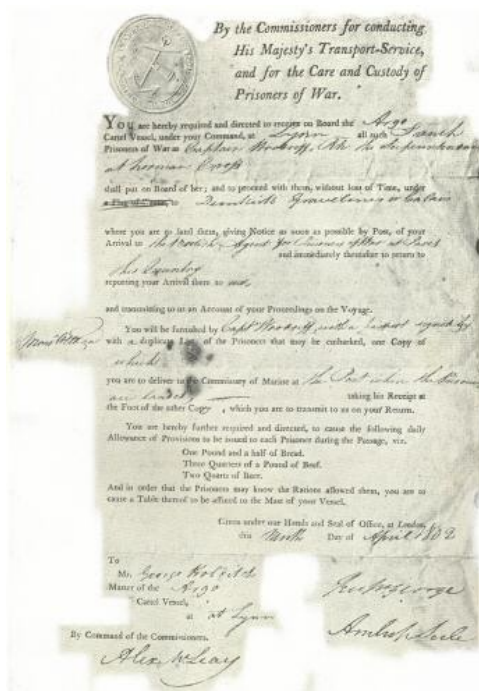 By the Commissioners for conducting
His Majesty's Transport-Service,
and for the Care and Custody of
Prisoners of War.
You are hereby required and directed to receive on Board the Argo
Cartel Vessel, under your Command, at Lynn all such French
Prisoners of War as Captain Woodriff, R.N. the Superintendent
at Norman Cross
shall put on Board of her; and to proceed with them, without loss of Time, under
a Flag of Truce, to Dunkirk Gravelines or Calais
where you are to land them, giving Notice as soon as possible by Post, of your
Arrival to the British Agent for Prisoners of War at Paris
and immediately thereafter to return to
this Country
reporting your Arrival there to us
and transmitting to us an Account of your Proceedings on the Voyage.
You will be furnished by Capt Woodriff with a signed by
with a duplicate List of the Prisoners that may be embarked, one Copy of
which
you are to deliver to the Commissary of Marine at the Port where the Prisoners
are landed taking his Receipt at
the Foot of the other Copy, which you are to transmit to us on your Return.
You are hereby further required and directed, to cause the following daily
Allowance of Provisions to be issued to each Prisoner during the Passage, viz.
One Pound and a half of Bread.
Three Quarters of a Pound of Beef.
Two Quarts of Beer.
And in order that the Prisoners may know the Rations allowed them, you are to
cause a Table thereof to be affixed to the Mast of your Vessel.
Given under our Hands and Seal of Office, at London,
this Day of April 1802
To
Mr. George
Master of the Argo
Cartel Vessel,
at at Lynn
Geo
Ambrose Serle
By Command of the Commissioners.
Alex McLeay